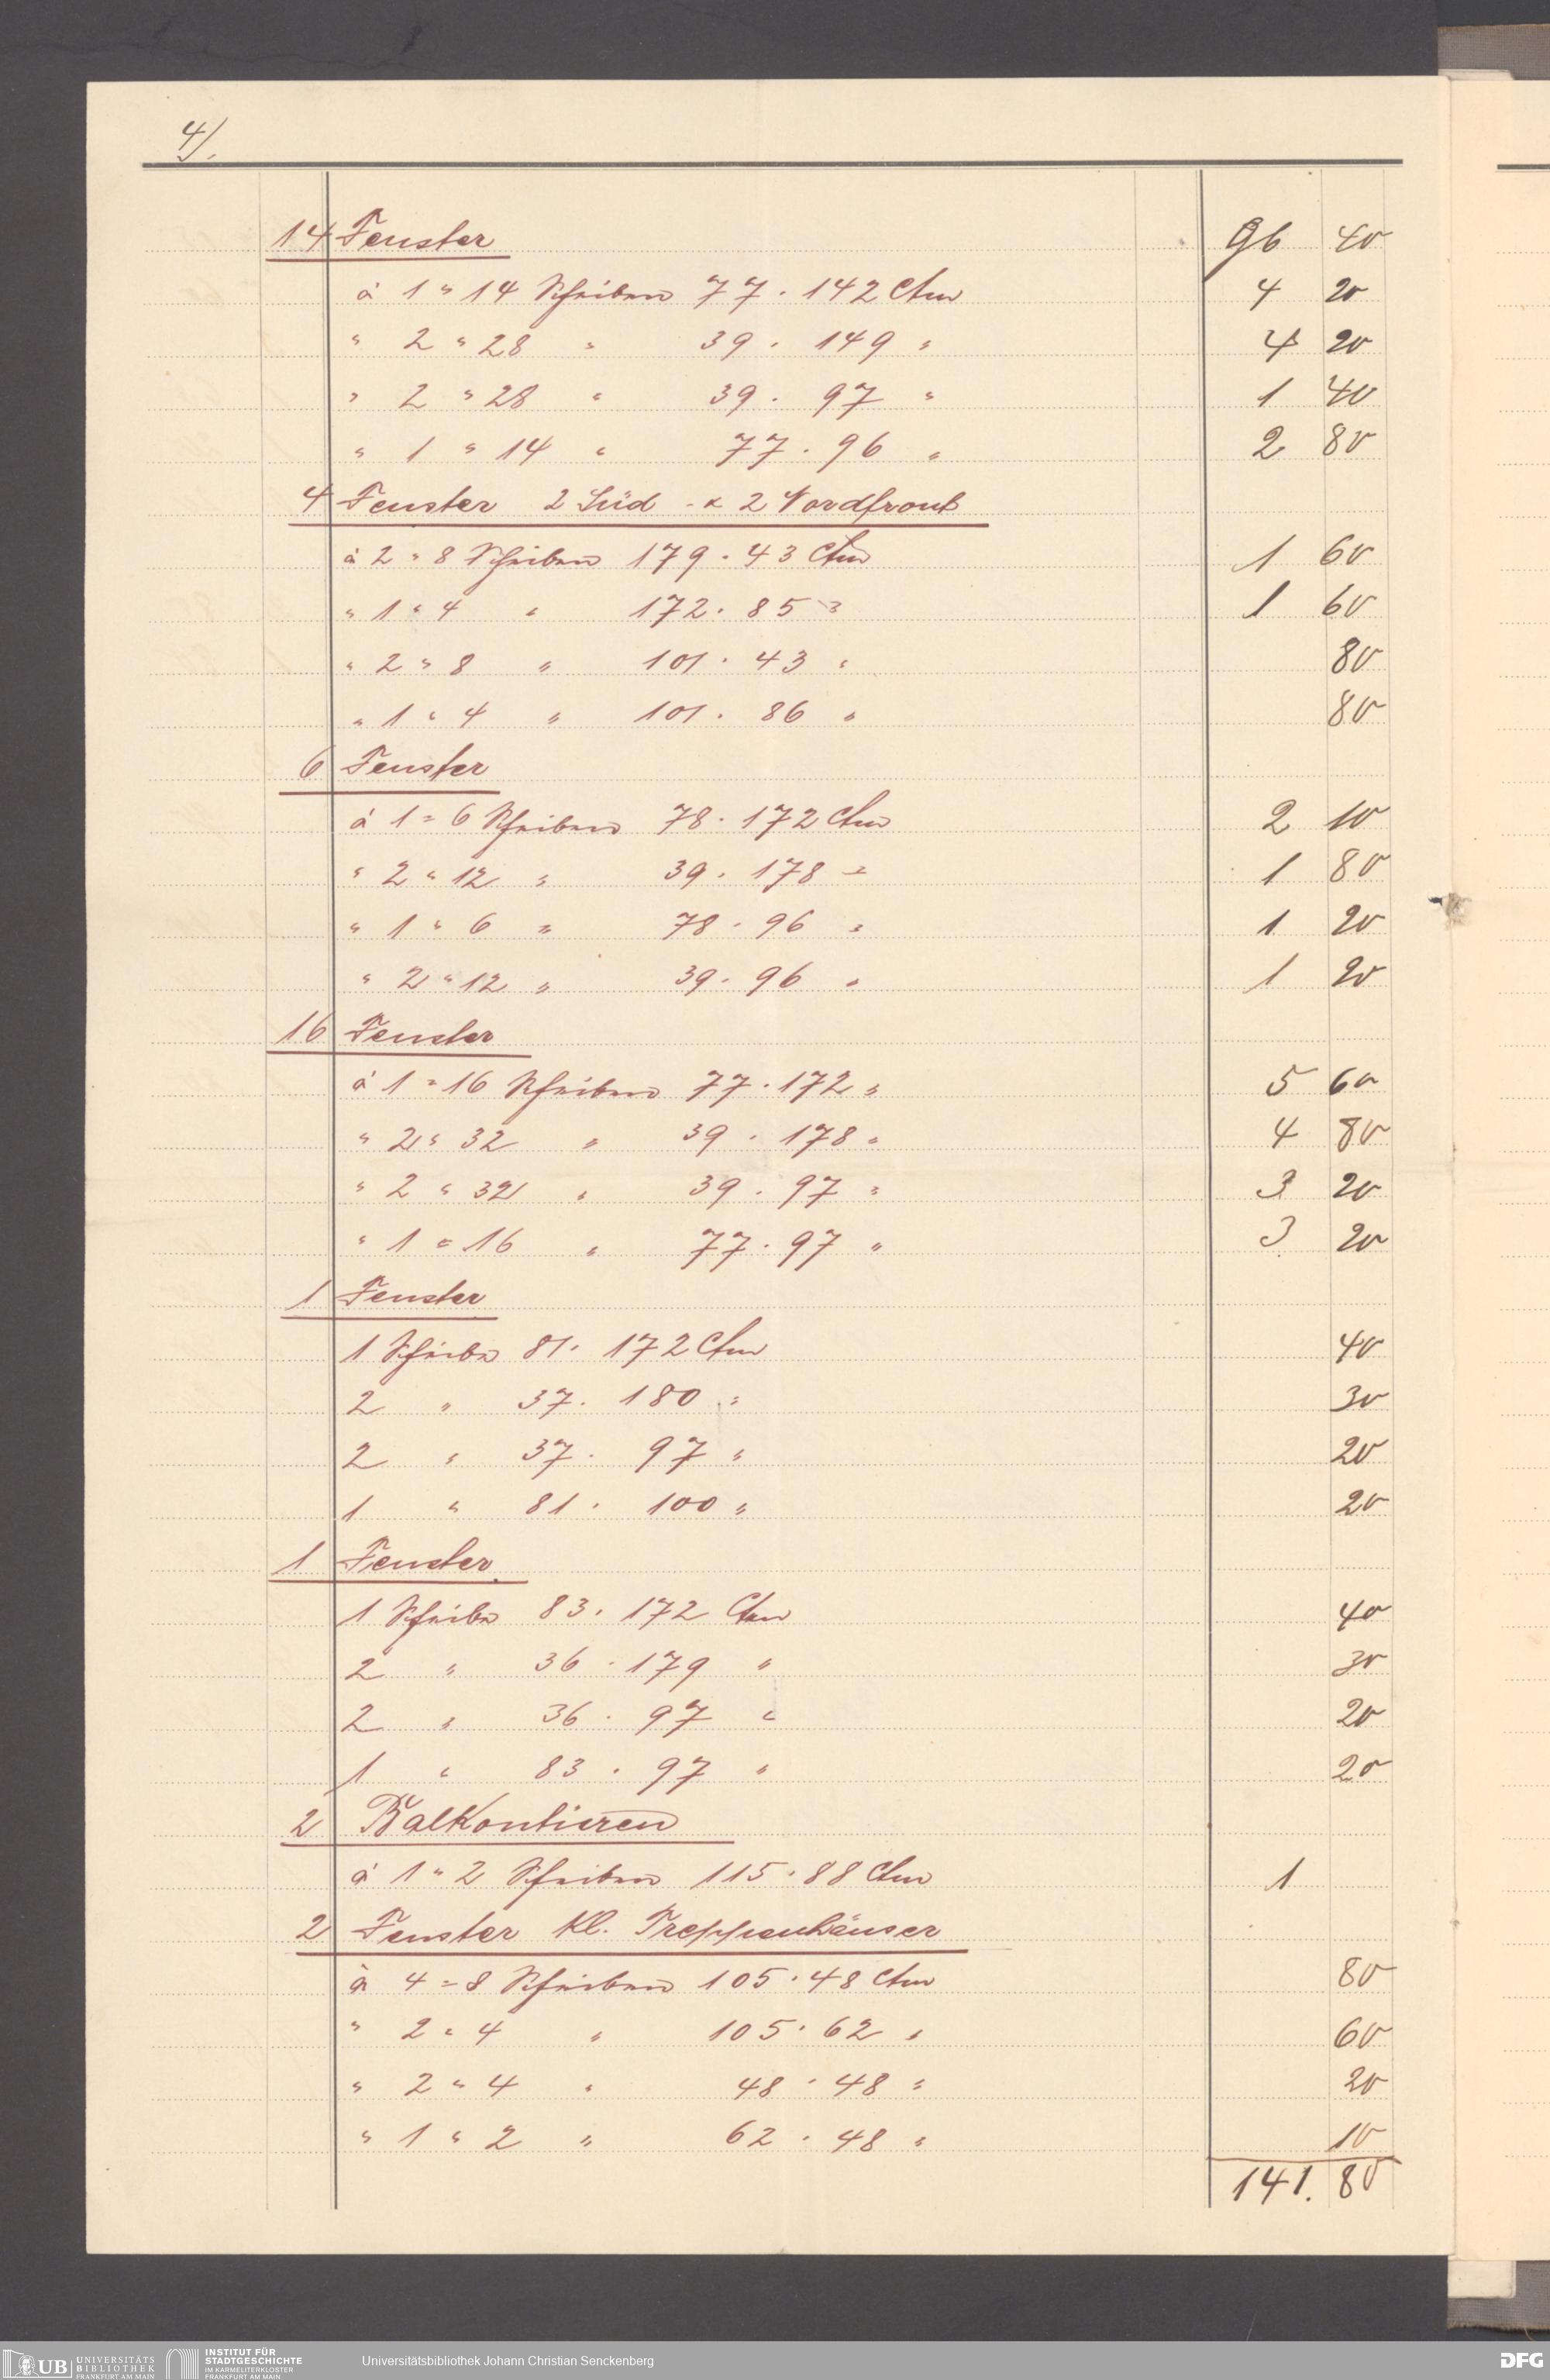 4/.
14 Fenster 96 40
à 1 " 14 Scheiben 77 . 142 Ctm 4 20
" 2 " 28 " 39 . 149 " 4 20
" 2 " 28 " 39 . 97 " 1 40
" 1 " 14 " 77 . 96 " 2 80
4 Fenster 2 Süd - & 2 Nordfront
à 2 " 8 Scheiben 179 . 43 Ctm 1 60
" 1 " 4 " 172 . 85 " 1 60
" 2 " 8 " 101 . 43 " 80
" 1 " 4 " 101 . 86 " 80
6 Fenster
à 1 = 6 Scheiben 78 . 172 Ctm 2 10
" 2 " 12 " 39 . 178 " 1 80
" 1 " 6 " 78 . 96 " 1 20
" 2 " 12 " 39 . 96 " 1 20
16 Fenster
à 1 = 16 Scheiben 77 . 172 " 5 60
" 2 " 32 " 39 . 178 " 4 80
" 2 " 32 " 39 . 97 " 3 20
" 1 = 16 " 77 . 97 " 3 20
1 Fenster
1 Scheibe 81 . 172 Ctm 40
2 " 37 . 180 " 30
2 " 37 . 97 " 20
1 " 81 . 100 " 20
1 Fenster
1 Scheibe 83 . 172 Ctm 40
2 " 36 . 179 " 30
2 " 36 . 97 " 20
1 " 83 . 97 " 20
2 Balkontüren
à 1 " 2 Scheiben 115 . 88 Ctm 1
2 Fenster Kl. Treppenhäuser
à 4 = 8 Scheiben 105 . 48 Ctm 80
" 2 " 4 " 105 . 62 " 60
" 2 " 4 " 48 . 48 " 20
" 1 " 2 " 62 . 48 " 10
141. 80
UB UNIVERSITÄTS BIBLIOTHEK FRANKFURT AM MAIN
INSTITUT FÜR STADTGESCHICHTE IM KARMELITERKLOSTER FRANKFURT AM MAIN
Universitätsbibliothek Johann Christian Senckenberg
DFG